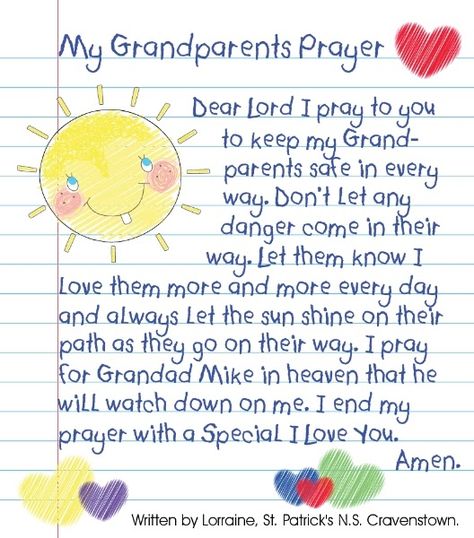 My Grandparents Prayer
Dear Lord I pray to you
to keep my Grand-
parents safe in every
way. Don't Let any
danger come in their
way. Let them know I
Love them more and more every day
and always Let the sun shine on their
path as they go on their way. I pray
for Grandad Mike in heaven that he
will watch down on me. I end my
prayer with a Special I Love You.
Amen.
Written by Lorraine, St. Patrick's N.S. Cravenstown.